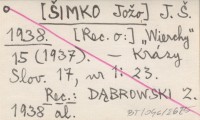 [ŠIMKO Jožo] J. Š.
1938. [Rec. o:] „Wierchy”
15 (1937). — Krásy
Slov. 17, nr 1: 23.
Rec.: DĄBROWSKI Z.
1938 al.